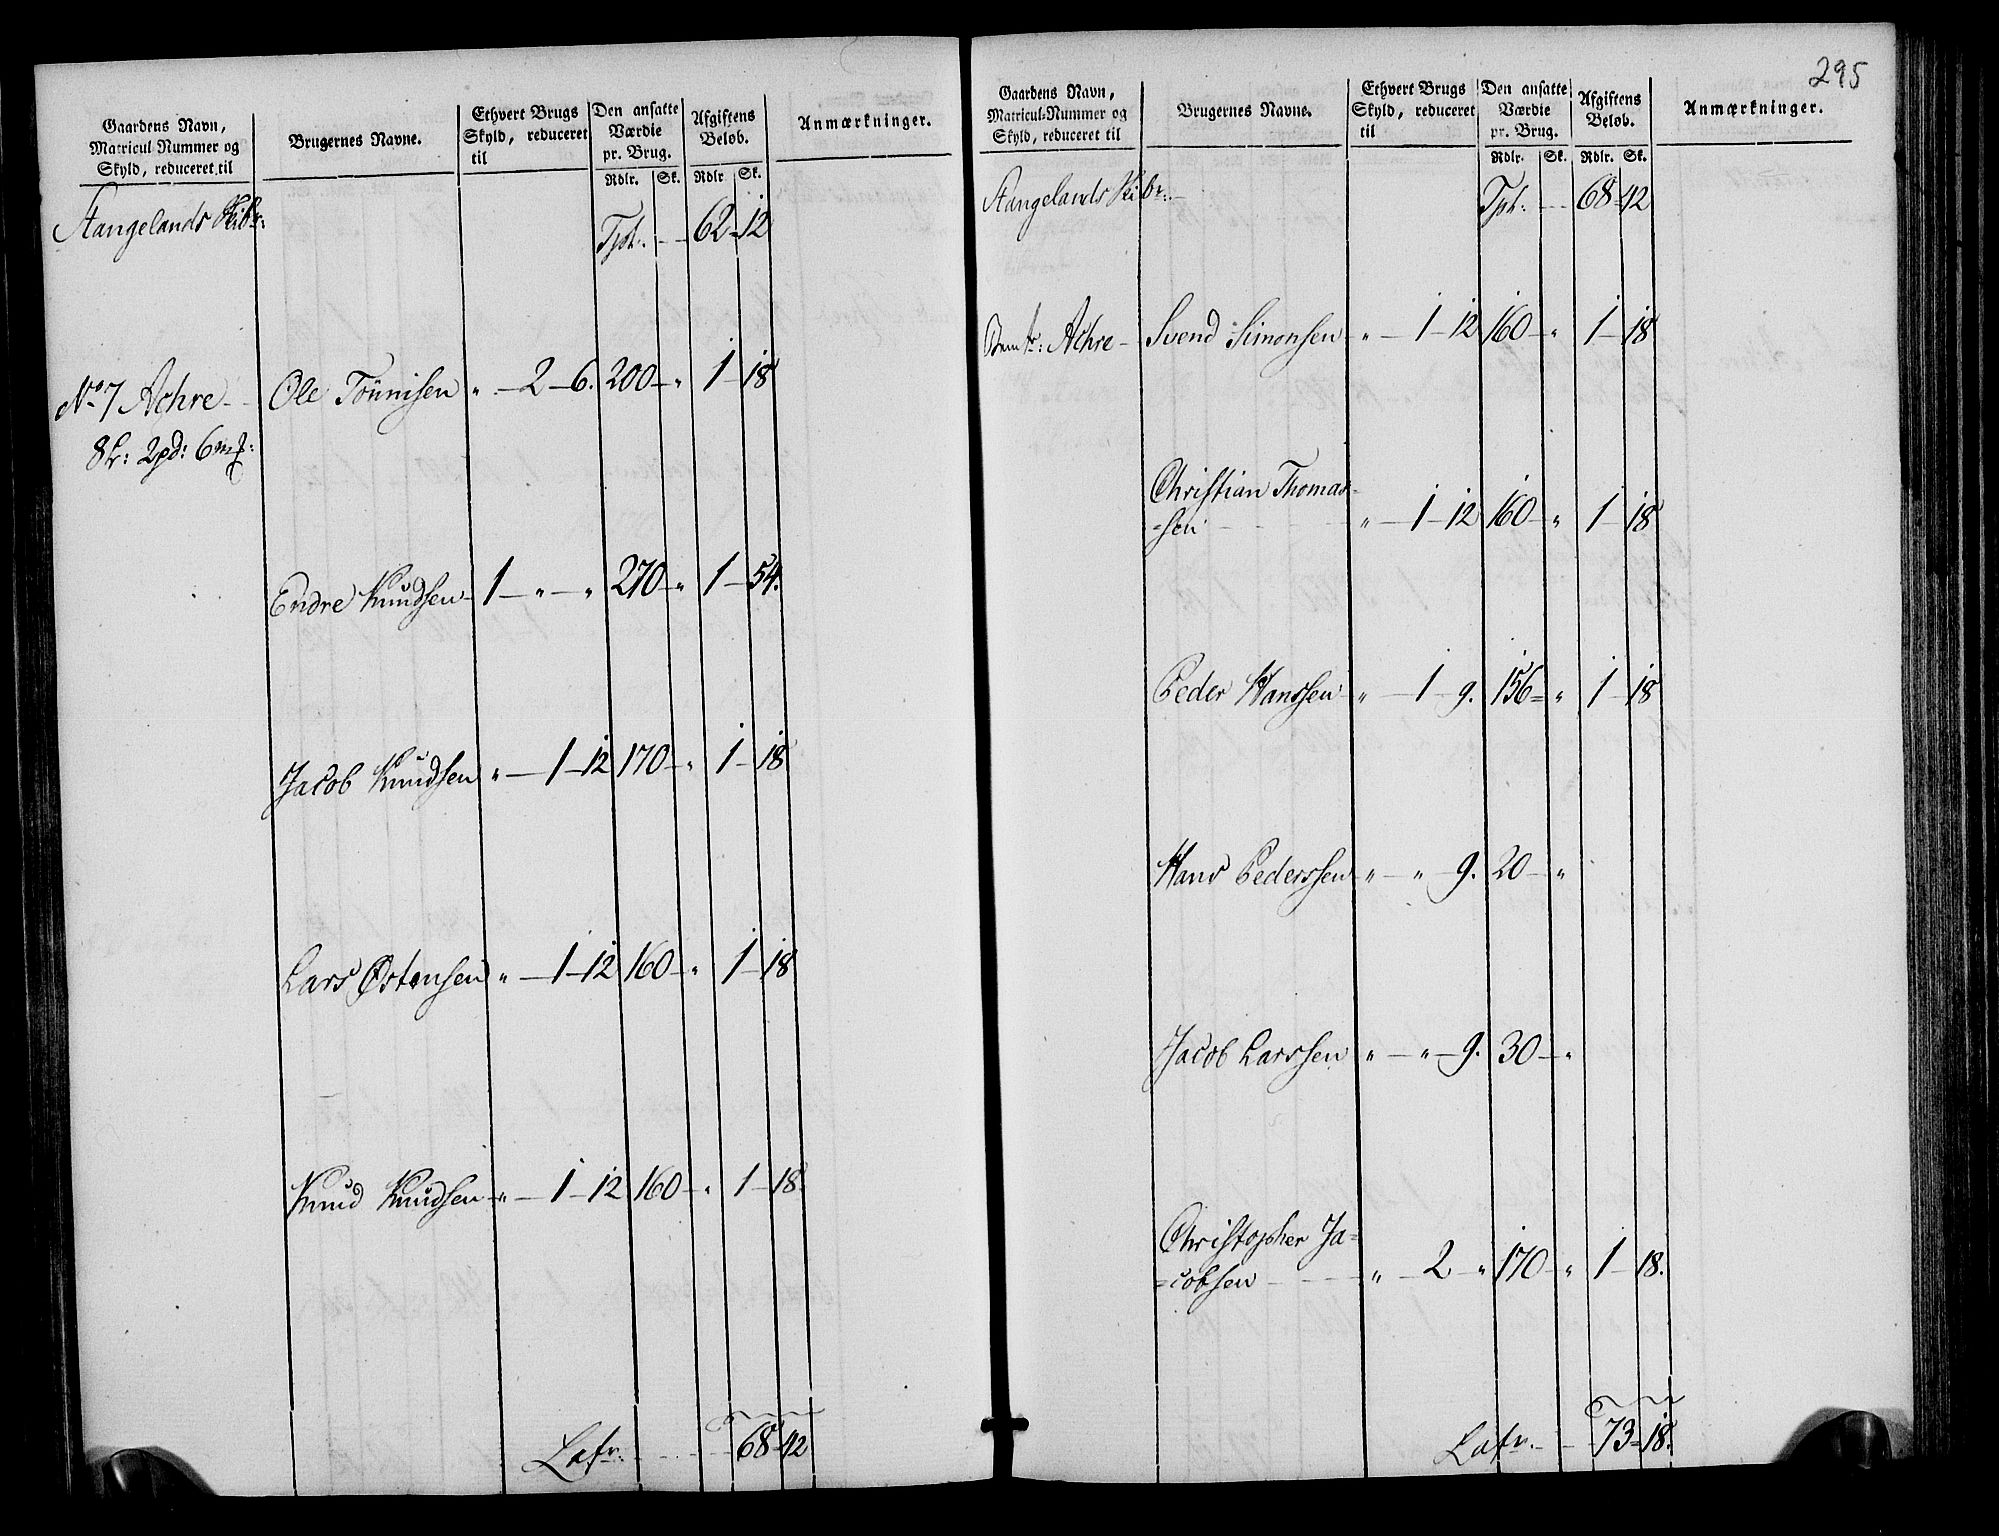 Gaardens Navn,
Matricul Nummer og
Skyld, reduceret til
Brugernes Navne.
Ethvert Brugs
Skyld, reduceret
til
Den ansatte
Værdie
pr. Brug.
Rdlr. Sk.
Afgiftens
Beløb.
Rdlr Sk.
Anmærkninger.
Stangelands Skibr:
Tpt: - - 62-12
No 7 Achre - - Ole Tönnisen „ - 2 - 6. 200 - „ 1 - 18
8 Lr: 2pd: 6 mf:
Endre Knudsen - 1 - „ - „ 270 - „ 1 - 54.
Jacob Knudsen „ - 1 - 12 170 - „ 1 - 18
Lars Østensen „ - 1 - 12 160 - „ 1 - 18
Knud Knudsen - „ - 1 - 12 160 - „ 1 - 18.
Latr: - - - 68-42
295
Gaardens Navn,
Matricul-Nummer og
Skyld, reduceret til
Brugernes Navne.
Ethvert Brugs
Skyld, reduceret
til
Den ansatte
Værdie
pr. Brug.
Rdlr. Sk.
Afgiftens
Beløb.
Rdlr. Sk.
Anmærkninger.
Stangelands Skibr: -
Tpt: - - 68-42
Achre - Svend Simonsen „ - 1 - 12 160 - „ 1 - 18
Christian Thomas=
=sen - - - „ - 1 - 12 160 - „ 1 - 18
Peder Hanssen „ - 1 - 9. 156 = „ 1 - 18
Hans Pederssen „ - „ - 9. 20 - „
Jacob Larssen „ - „ - 9. 30 - „
Christopher Ja=
=cobsen - - - „ - 2 - „ 170 - „ 1 - 18.
Latr: - - 73-18.